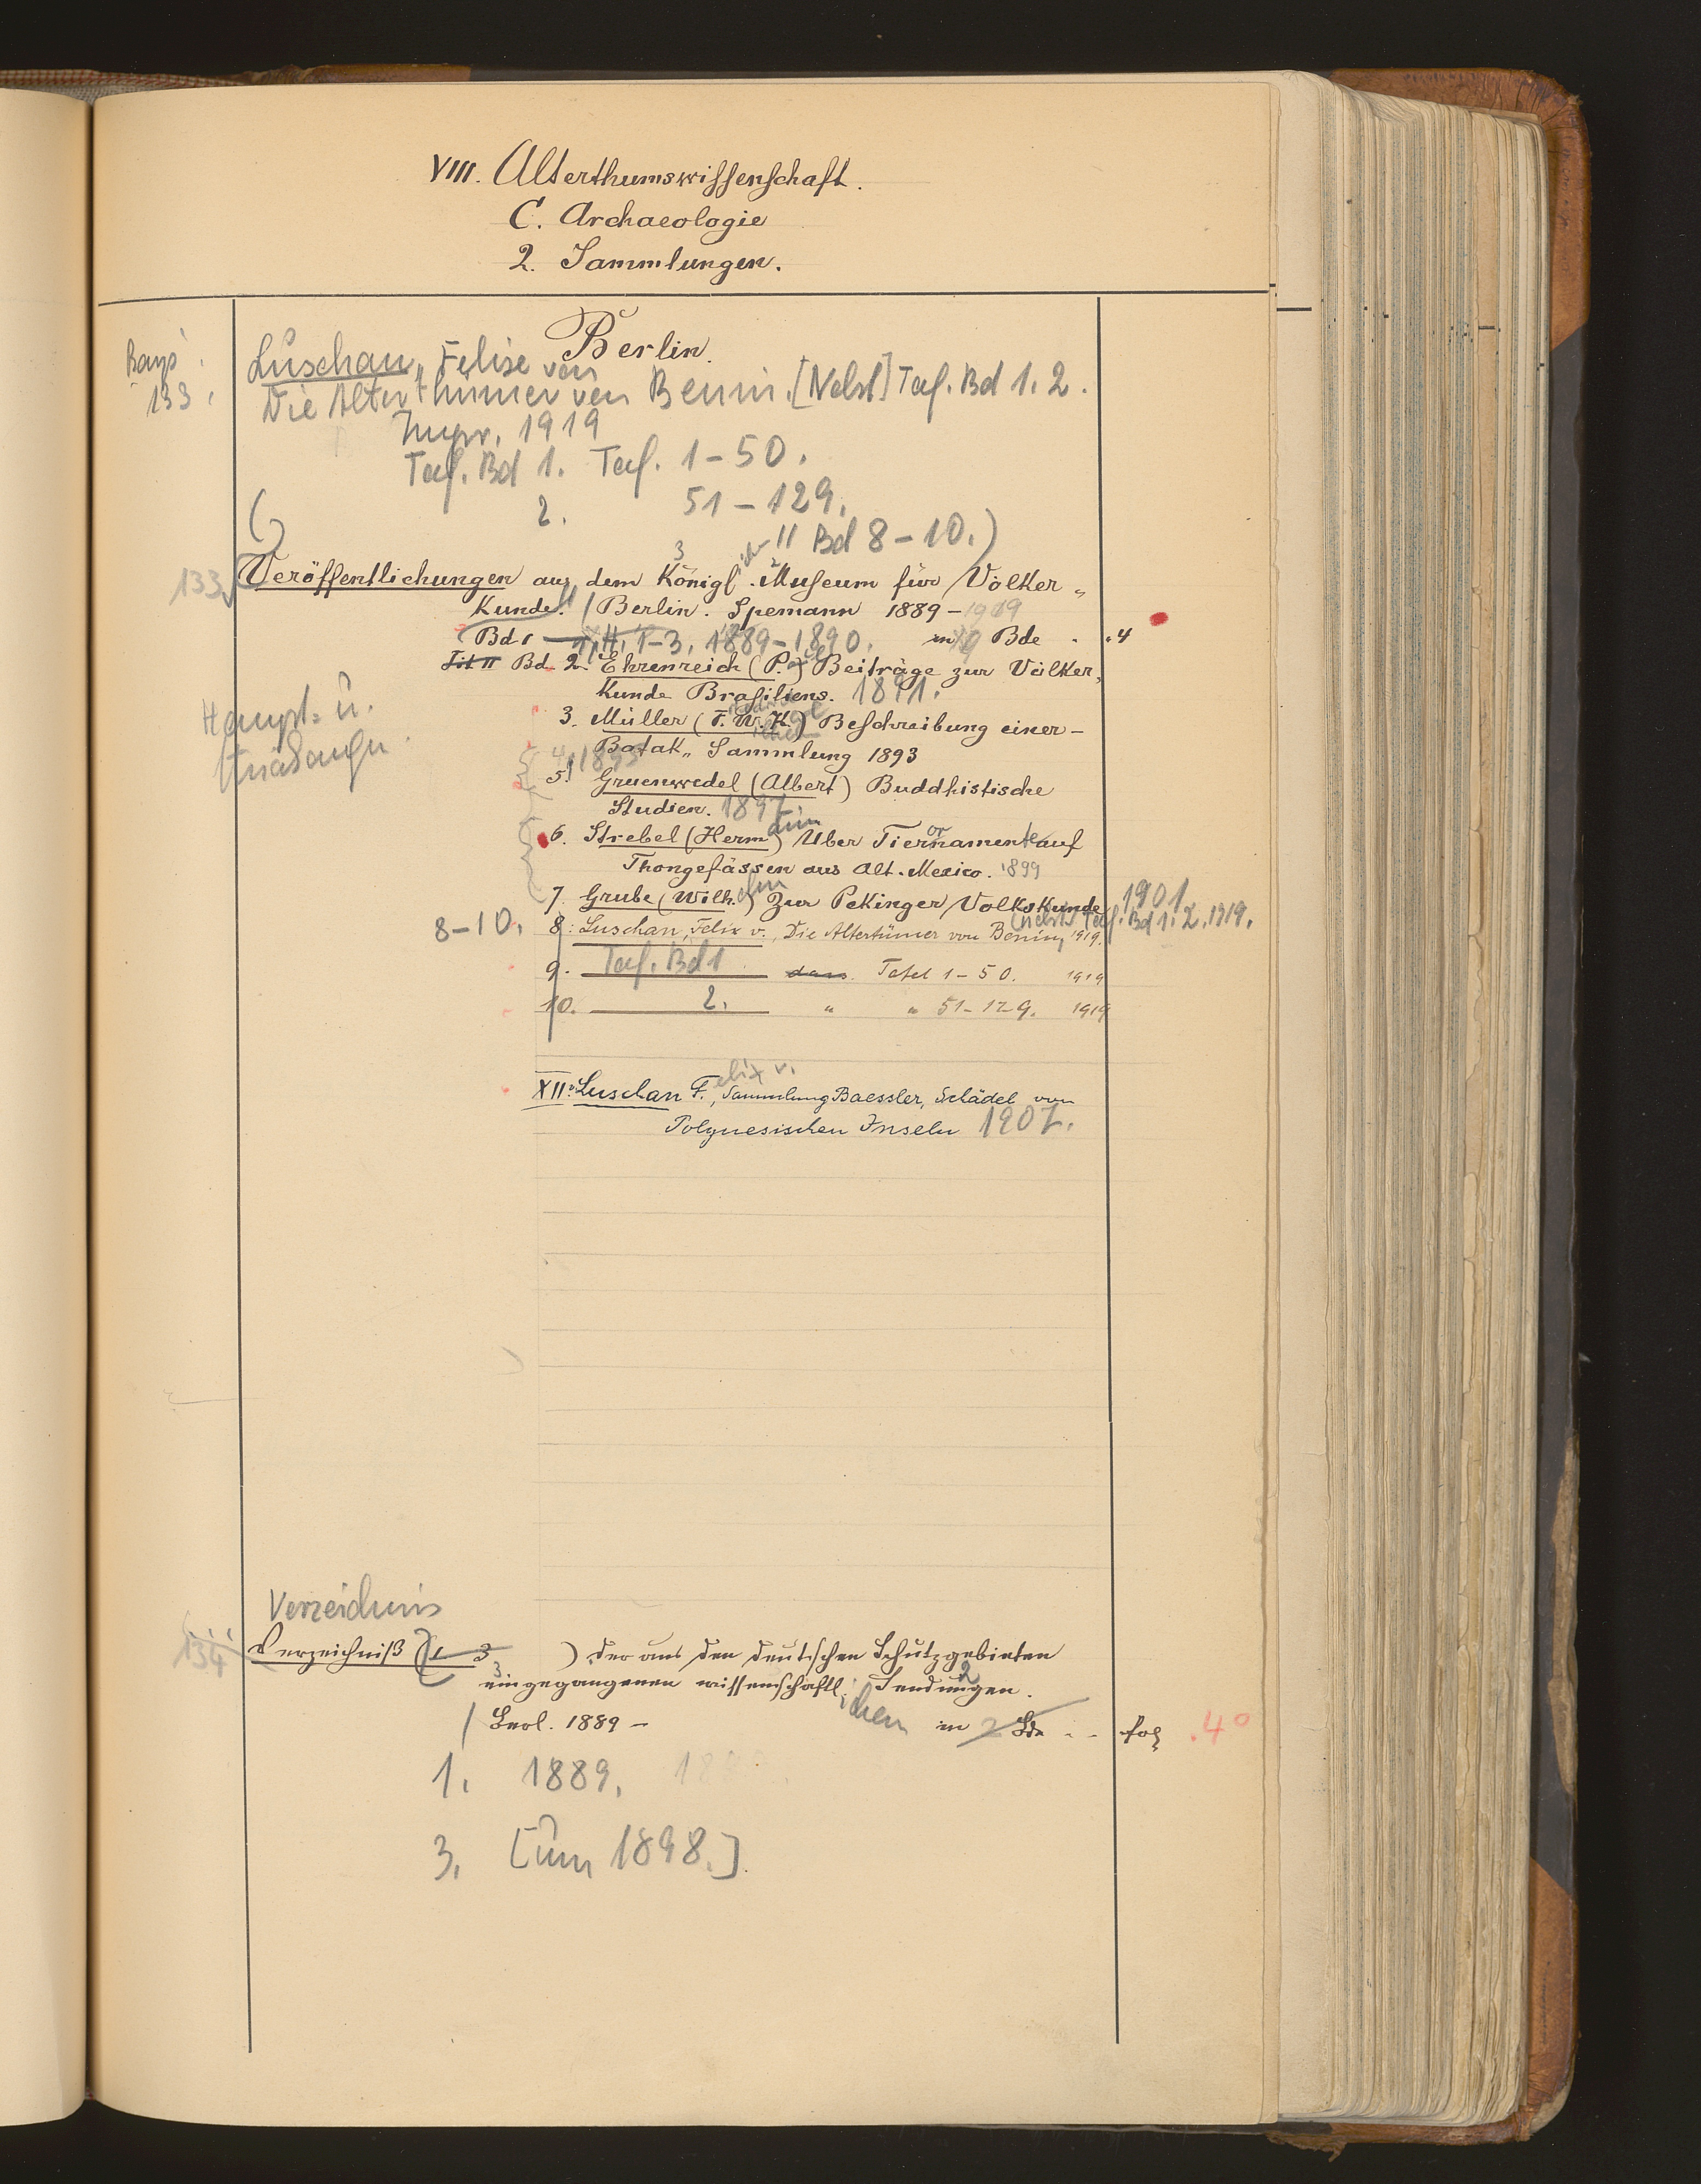 VIII. Alterthumswissenschaft.
C. Archaeologie
2. Sammlungen.
Berlin.
133.
Luschan, Felix von
Die Alterthümer von Benin. [Nebst] Taf. Bd 1. 2.
1919
Taf. Bd 1. Taf. 1-50.
2. 51-129.
( 11 Bd 8-10.)
133 Veröffentlichungen aus dem Königl. Museum für Völker„
Kunde. / Berlin. Spemann 1889-1919
Bd 1 H. 1-3. 1889-1890. in 10 Bde . 4
Bd 2. Ehrenreich (P.) Beiträge zur Völker„
Kunde Brasiliens. 1891.
Haupt- u.
3. Müller (F. W. K.) Beschreibung einer
Batak„ Sammlung 1893
4. 1895
5. Gruenwedel (Albert) Buddhistische
Studien. 1897.
6. Strebel (Hermann) Über Tierornamente auf
Thongefässen aus Alt-Mexico. 1899
7. Grube (Wilhelm) Zur Pekinger Volkskunde 1901
(nebst Taf. Bd 1. 2. 1919.
8-10. 8. Luschan, Felix v., Die Altertümer von Benin, 1919.
9. Taf. Bd 1 dass. Tafel 1-50. 1919
10. 2. " " 51-129. 1919
XII. Luschan Felix v., Sammlung Baessler, Schädel von
Polynesischen Inseln 1907.
Verzeichnis
134 Verzeichniß (1-3 ) der aus den deutschen Schutzgebieten
eingegangenen wissenschaftlichen Sendungen.
/ Berl. 1889 - in 2 Bde - - fol .4°
1. 1889.
3. [um 1898.]